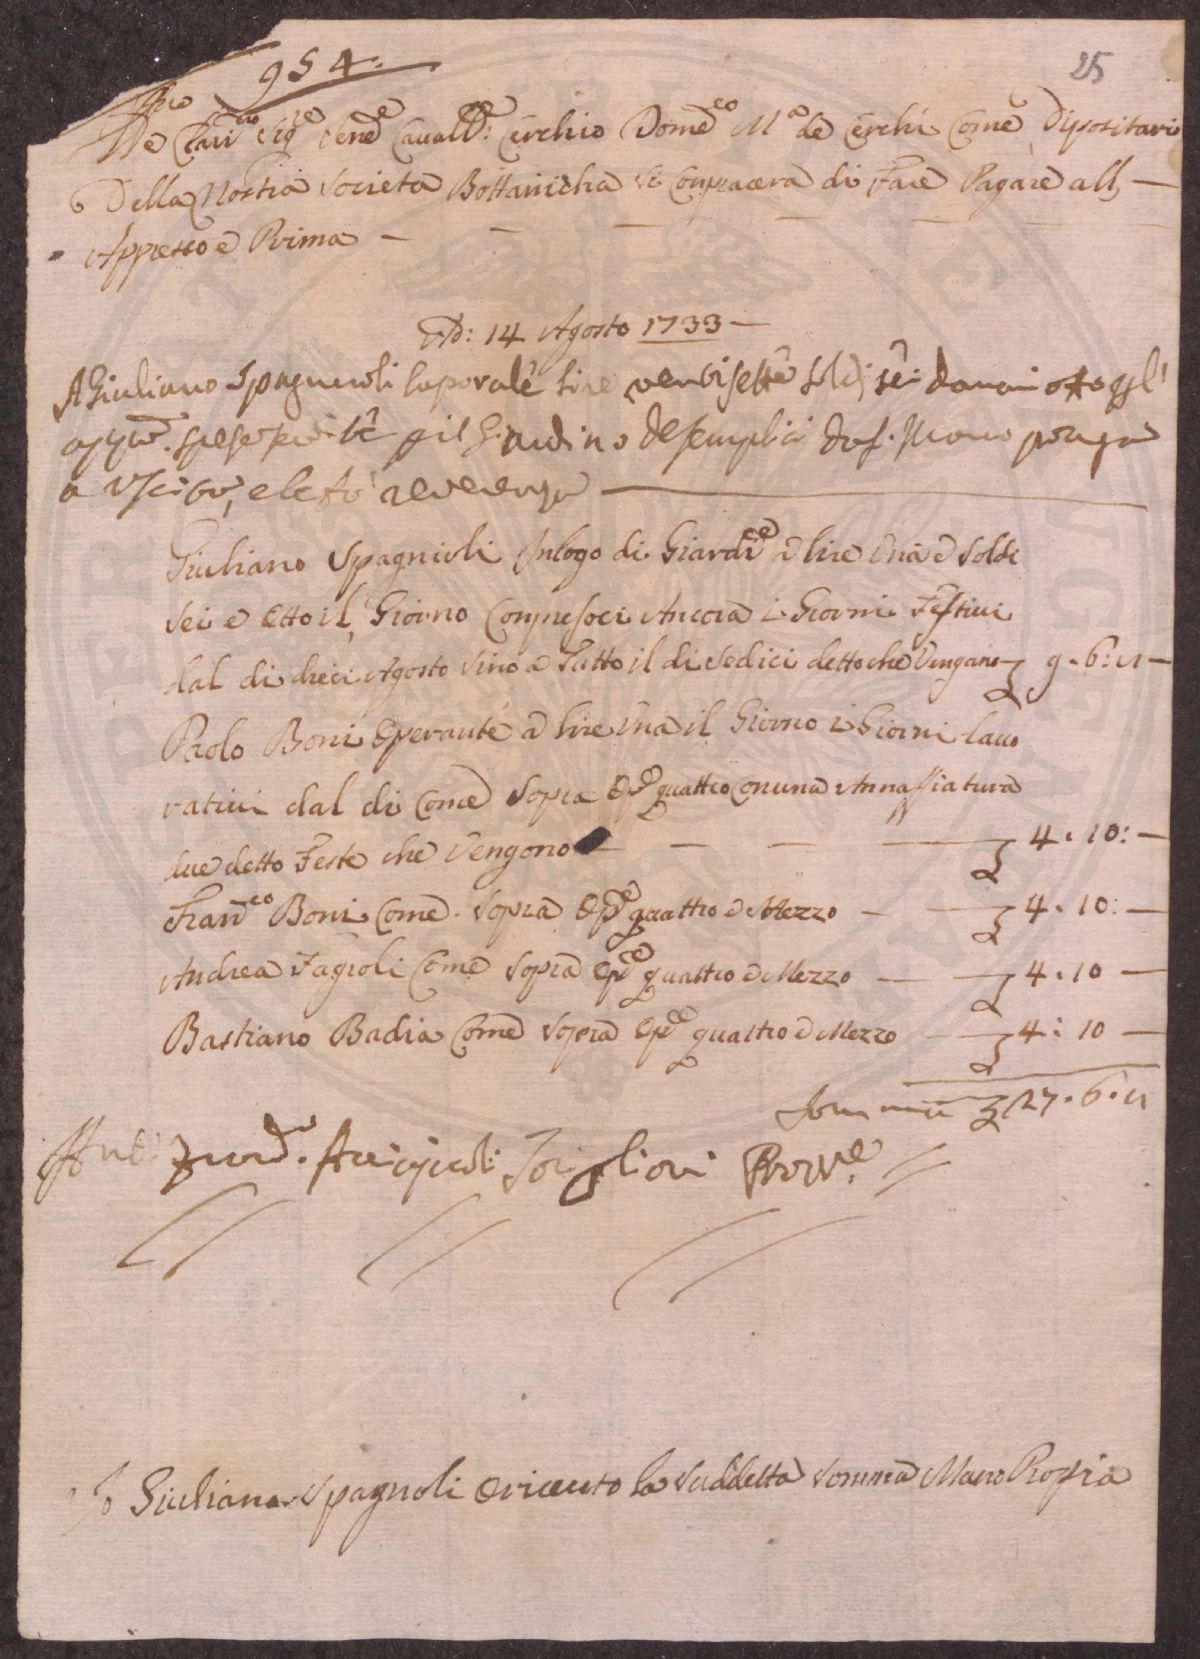 954.
25
Ill.mo Clari.mo Sig.re Sen.e Cavall.re Cerchio Domen.co M.a de Cerchi Come Dipositario
Della Nostra Societa Bottanicha Si Conpiacera di Fare Pagare all
Appresso e Prima
Ad: 14 Agosto 1733
A Giuliano Spagnuoli Caporale lire ventisette soldi sei danari otto
spese p il Giardino de semplici
a uscita,
Giuliano Spagnioli In logo di Giardi.re a lire Una e Soldi
Sei e Otto il Giorno Conpresoci Ancora i Giorni Festivi
dal di dieci Agosto Sino a Tutto il di Sedici detto che Vengano 9. 6: 8
Paolo Boni Operante a lire Una il Giorno i Giorni lavo
rativi dal di Come Sopra Op.e quattro con una Annaffiatura
due detto Feste che Vengono 4. 10:
Fran.co Boni Come Sopra Op.e quattro e Mezzo 4. 10:
Andrea Fagioli Come Sopra Op.e quattro e Mezzo 4. 10
Bastiano Badia Come Sopra Op.e quattro e Mezzo 4: 10
Somma 27. 6. 8
Prov.re
Io Giuliano Spagnoli O riceuto la Suddetta Somma Mano Propia